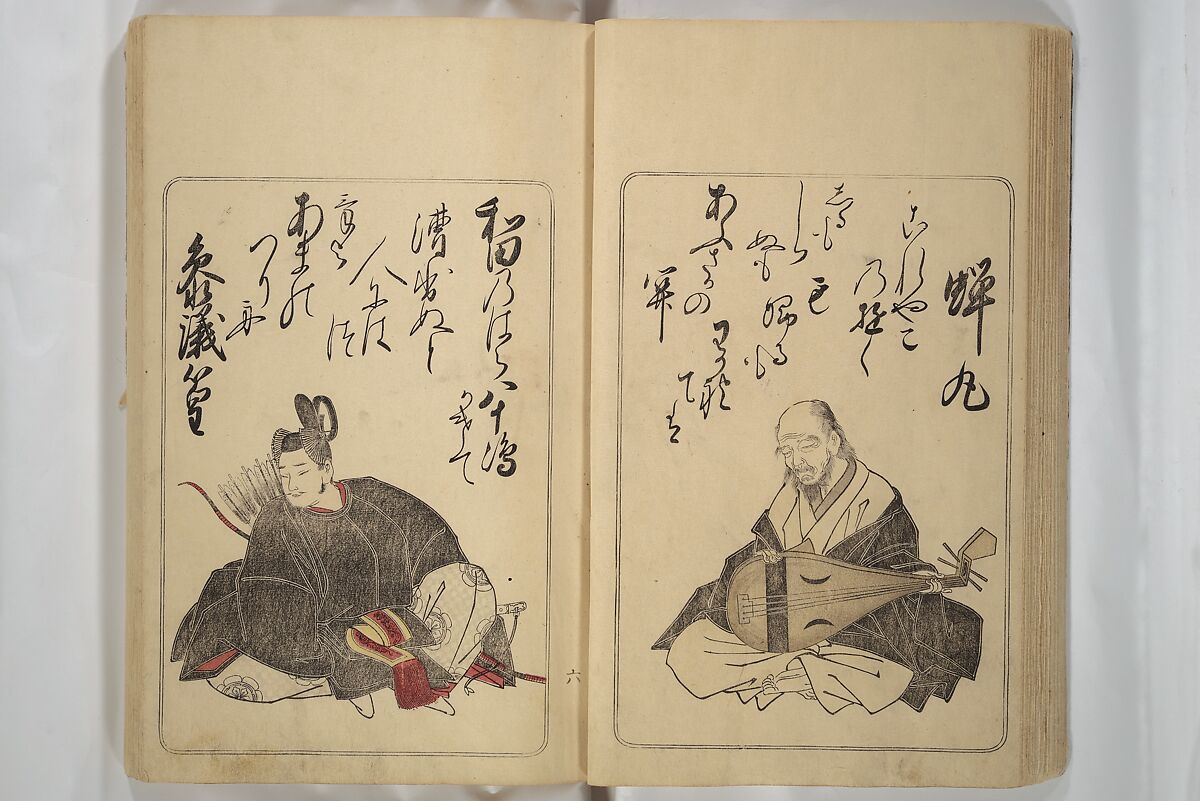 蝉丸
これやこ
乃行く
も
帰るも
わかれ
ては
しるも
しら
ぬも
あふさかの
関
和田乃はら八十嶋
かけて
漕出ぬと
人には
つ
けよ
あまの
つり舟
参議篁
六